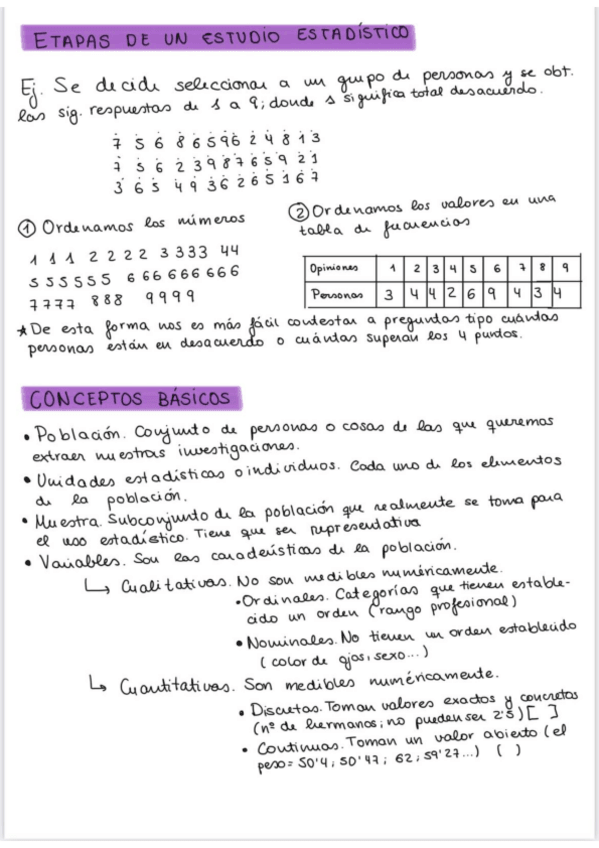 ETAPAS DE UN ESTUDIO ESTADÍSTICO
Ej. Se decide seleccionar a un grupo de personas y se obt.
las sig. respuestas de 1 a 9; donde 1 significa total desacuerdo.
7 5 6 8 6 5 9 6 2 4 8 1 3
7 5 6 2 3 9 8 7 6 5 9 2 1
3 6 5 4 9 3 6 2 6 5 1 6 7
① Ordenamos los números
1 1 1 2 2 2 2 3 3 3 3 4 4
5 5 5 5 5 5 6 6 6 6 6 6 6 6 6
7 7 7 7 8 8 8 9 9 9 9
② Ordenamos los valores en una
tabla de frecuencias
Opiniones 1 2 3 4 5 6 7 8 9
Personas 3 4 4 2 6 9 4 3 4
* De esta forma nos es más fácil contestar a preguntas tipo cuántas
personas están en desacuerdo o cuántas superan los 4 puntos.
CONCEPTOS BÁSICOS
• Población. Conjunto de personas o cosas de las que queremos
extraer nuestras investigaciones.
• Unidades estadísticas o individuos. Cada uno de los elementos
de la población.
• Muestra. Subconjunto de la población que realmente se toma para
el uso estadístico. Tiene que ser representativa
• Variables. Son las características de la población.
↳ Cualitativas. No son medibles numéricamente.
• Ordinales. Categorías que tienen estable-
cido un orden (rango profesional)
• Nominales. No tienen un orden establecido
(color de ojos, sexo...)
↳ Cuantitativas. Son medibles numéricamente.
• Discretas. Toman valores exactos y concretos
(nº de hermanos; no pueden ser 2'5) [ ]
• Continuas. Toman un valor abierto (el
peso = 50'4; 50'47; 62; 59'27...) ( )